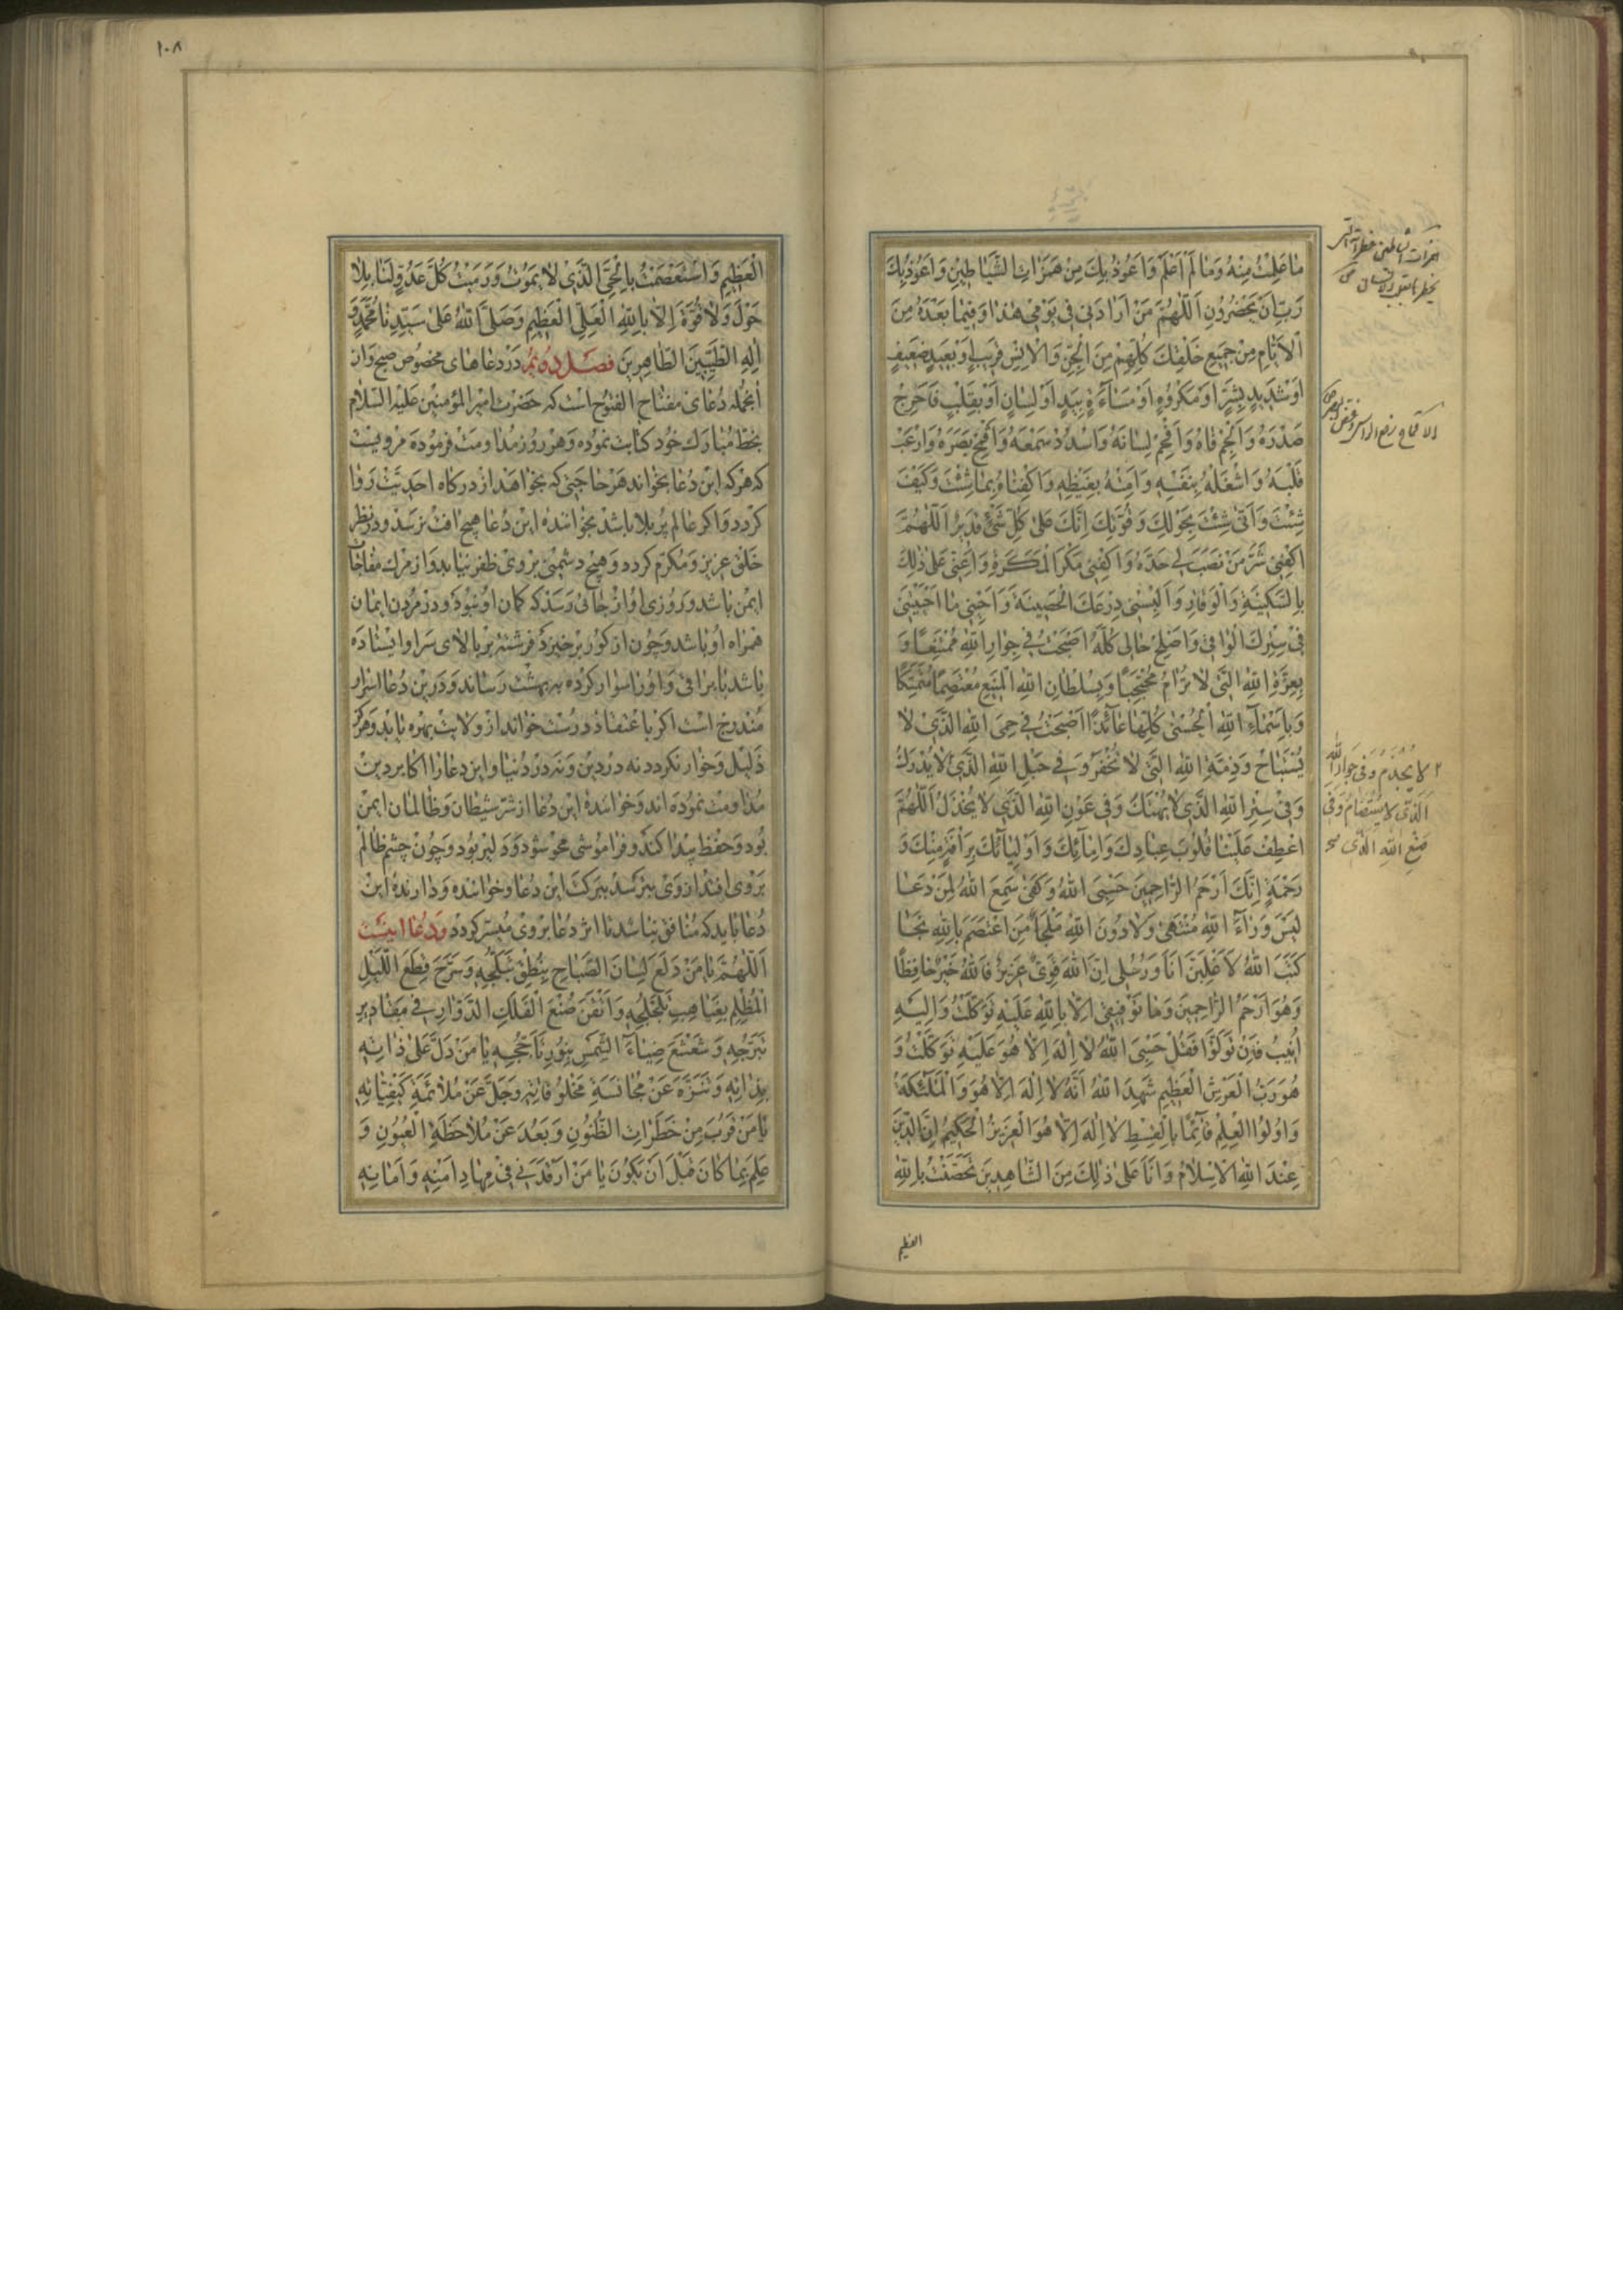 مَا عَلِمْتُ مِنْهُ وَمَا لَمْ اَعْلَمْ وَاَعُوذُ بِكَ مِنْ هَمَزَاتِ الشَّيَاطِينِ وَاَعُوذُ بِكَ
رَبِّ اَنْ يَحْضُرُونِ اَللّٰهُمَّ مَنْ اَرَادَنِي فِي يَوْمِي هٰذَا وَفِيمَا بَعْدَهُ مِنَ
الْاَيَّامِ مِنْ جَمِيعِ خَلْقِكَ كُلِّهِمْ مِنَ الْجِنِّ وَالْاِنْسِ قَرِيبٍ اَوْ بَعِيدٍ ضَعِيفٍ
اَوْ شَدِيدٍ بِشَرٍّ اَوْ مَكْرُوهٍ اَوْ مَسَاءَةٍ بِيَدٍ اَوْ لِسَانٍ اَوْ بِقَلْبٍ فَاَحْرِجْ
صَدْرَهُ وَاَلْجِمْ فَاهُ وَاَفْحِمْ لِسَانَهُ وَاسْدُدْ سَمْعَهُ وَاَقْمِحْ بَصَرَهُ وَارْعَبْ
قَلْبَهُ وَاشْغَلْهُ بِنَفْسِهِ وَاَمِتْهُ بِغَيْظِهِ وَاكْفِنَاهُ بِمَا شِئْتَ وَكَيْفَ
شِئْتَ وَاَنّٰى شِئْتَ بِحَوْلِكَ وَقُوَّتِكَ اِنَّكَ عَلٰى كُلِّ شَيْءٍ قَدِيرٌ اَللّٰهُمَّ
اكْفِنِي شَرَّ مَنْ نَصَبَ لِي حَدَّهُ وَاكْفِنِي مَكْرَ الْمَكَرَةِ وَاَعِنِّي عَلٰى ذٰلِكَ
بِالسَّكِينَةِ وَالْوَقَارِ وَاَلْبِسْنِي دِرْعَكَ الْحَصِينَةَ وَاَحْيِنِي مَا اَحْيَيْتَنِي
فِي سِتْرِكَ الْوَاقِي وَاَصْلِحْ حَالِي كُلَّهُ اَصْبَحْتُ فِي جِوَارِ اللّٰهِ مُمْتَنِعًا وَ
بِعِزَّةِ اللّٰهِ الَّتِي لَا تُرَامُ مُحْتَجِبًا وَبِسُلْطَانِ اللّٰهِ الْمَنِيعِ مُعْتَصِمًا مُتَمَسِّكًا
وَبِاَسْمَاءِ اللّٰهِ الْحُسْنٰى كُلِّهَا عَائِذًا اَصْبَحْتُ فِي حِمَى اللّٰهِ الَّذِي لَا
يُسْتَبَاحُ وَذِمَّةِ اللّٰهِ الَّتِي لَا تُخْفَرُ وَفِي حَبْلِ اللّٰهِ الَّذِي لَا يُدْرَكُ
وَفِي سِتْرِ اللّٰهِ الَّذِي لَا يُهْتَكُ وَفِي عَوْنِ اللّٰهِ الَّذِي لَا يُخْذَلُ اَللّٰهُمَّ
اعْطِفْ عَلَيْنَا قُلُوبَ عِبَادِكَ وَاِمَائِكَ وَاَوْلِيَائِكَ بِرَأْفَةٍ مِنْكَ وَ
رَحْمَةٍ اِنَّكَ اَرْحَمُ الرَّاحِمِينَ حَسْبِيَ اللّٰهُ وَكَفٰى سَمِعَ اللّٰهُ لِمَنْ دَعَا
لَيْسَ وَرَاءَ اللّٰهِ مُنْتَهٰى وَلَا دُونَ اللّٰهِ مَلْجَأٌ مَنِ اعْتَصَمَ بِاللّٰهِ نَجَا
كَتَبَ اللّٰهُ لَاَغْلِبَنَّ اَنَا وَرُسُلِي اِنَّ اللّٰهَ قَوِيٌّ عَزِيزٌ فَاللّٰهُ خَيْرٌ حَافِظًا
وَهُوَ اَرْحَمُ الرَّاحِمِينَ وَمَا تَوْفِيقِي اِلَّا بِاللّٰهِ عَلَيْهِ تَوَكَّلْتُ وَاِلَيْهِ
اُنِيبُ فَاِنْ تَوَلَّوْا فَقُلْ حَسْبِيَ اللّٰهُ لَا اِلٰهَ اِلَّا هُوَ عَلَيْهِ تَوَكَّلْتُ وَ
هُوَ رَبُّ الْعَرْشِ الْعَظِيمِ شَهِدَ اللّٰهُ اَنَّهُ لَا اِلٰهَ اِلَّا هُوَ وَالْمَلٰئِكَةُ
وَاُولُوا الْعِلْمِ قَائِمًا بِالْقِسْطِ لَا اِلٰهَ اِلَّا هُوَ الْعَزِيزُ الْحَكِيمُ اِنَّ الدِّينَ
عِنْدَ اللّٰهِ الْاِسْلَامُ وَاَنَا عَلٰى ذٰلِكَ مِنَ الشَّاهِدِينَ تَحَصَّنْتُ بِاللّٰهِ
العظیم
لا یُجْذَمُ وَفی جِوارِ اللّٰهِ
الَّذی لا یُسْتَضامُ وَفی
صُنْعِ اللّٰهِ الَّذی
١٠٨
الْعَظِيمِ وَاسْتَعْصَمْتُ بِالْحَيِّ الَّذِي لَا يَمُوتُ وَرَمَيْتُ كُلَّ عَدُوٍّ لَنَا بِلَا
حَوْلَ وَلَا قُوَّةَ اِلَّا بِاللّٰهِ الْعَلِيِّ الْعَظِيمِ وَصَلَّى اللّٰهُ عَلٰى سَيِّدِنَا مُحَمَّدٍ وَ
اٰلِهِ الطَّيِّبِينَ الطَّاهِرِينَ فصل دوم در دعاهای مخصوص صبح وان
انجمله دعای مفتاح الفتوح است که حضرت امیر المؤمنین علیه السلام
بخط مبارک خود کتابت نموده و هر روز مداومت فرموده مرویست
که هرکه این دعا بخواند هر حاجتی که بخواهد از درکاه احدیت روا
کردد و اکر عالم پر بلا باشد بخواننده این دعا هیچ افت نرسد و در نظر
خلق عزیز و مکرم کردد و هیچ دشمنی بر وی ظفر نیابد و از مرک مفاجات
ایمن باشد و روزی او از جائی رسد که کمان او نبود و در مردن ایمان
همراه او باشد و چون از کور برخیزد فرشته بر بالای سر او ایستاده
باشد با براقی و او را سوار کرده به بهشت رساند و درین دعا اسرار
مندرج است اکر باعتقاد درست خواند از ولایت بهره یابد و هرکز
ذلیل و خوار نکردد نه در دین و نه در دنیا و این دعا را اکابر دین
مداومت نموده اند و خواننده این دعا از شر شیطان و ظالمان ایمن
بود و حفظ پیدا کند و فراموشی محو شود و دلیر بود و چون چشم ظالم
بر وی افتد از وی بترسد ببرکت این دعا و خواننده و دارنده این
دعا باید که منافق نباشد تا اثر دعا بر وی میسر کردد و دعا اینست
اَللّٰهُمَّ يَا مَنْ دَلَعَ لِسَانَ الصَّبَاحِ بِنُطْقِ تَبَلُّجِهِ وَسَرَّحَ قِطَعَ اللَّيْلِ
الْمُظْلِمِ بِغَيَاهِبِ تَلَجْلُجِهِ وَاَتْقَنَ صُنْعَ الْفَلَكِ الدَّوَّارِ فِي مَقَادِيرِ
تَبَرُّجِهِ وَشَعْشَعَ ضِيَاءَ الشَّمْسِ بِنُورِ تَأَجُّجِهِ يَا مَنْ دَلَّ عَلٰى ذَاتِهِ
بِذَاتِهِ وَتَنَزَّهَ عَنْ مُجَانَسَةِ مَخْلُوقَاتِهِ وَجَلَّ عَنْ مُلَائَمَةِ كَيْفِيَّاتِهِ
يَا مَنْ قَرُبَ مِنْ خَطَرَاتِ الظُّنُونِ وَبَعُدَ عَنْ مُلَاحَظَةِ الْعُيُونِ وَ
عَلِمَ بِمَا كَانَ قَبْلَ اَنْ يَكُونَ يَا مَنْ اَرْقَدَنِي فِي مِهَادِ اَمْنِهِ وَاَمَانِهِ